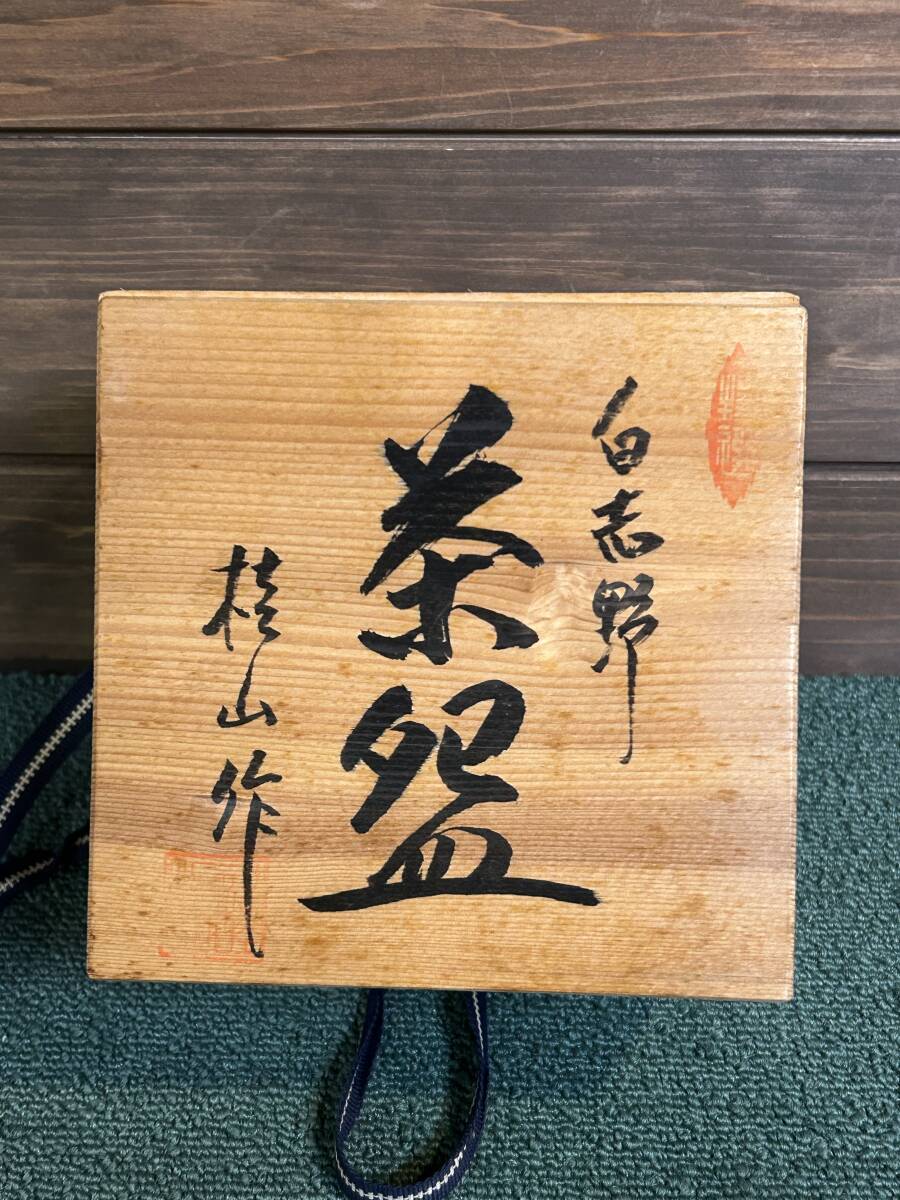 白志野
茶盌
桂山作